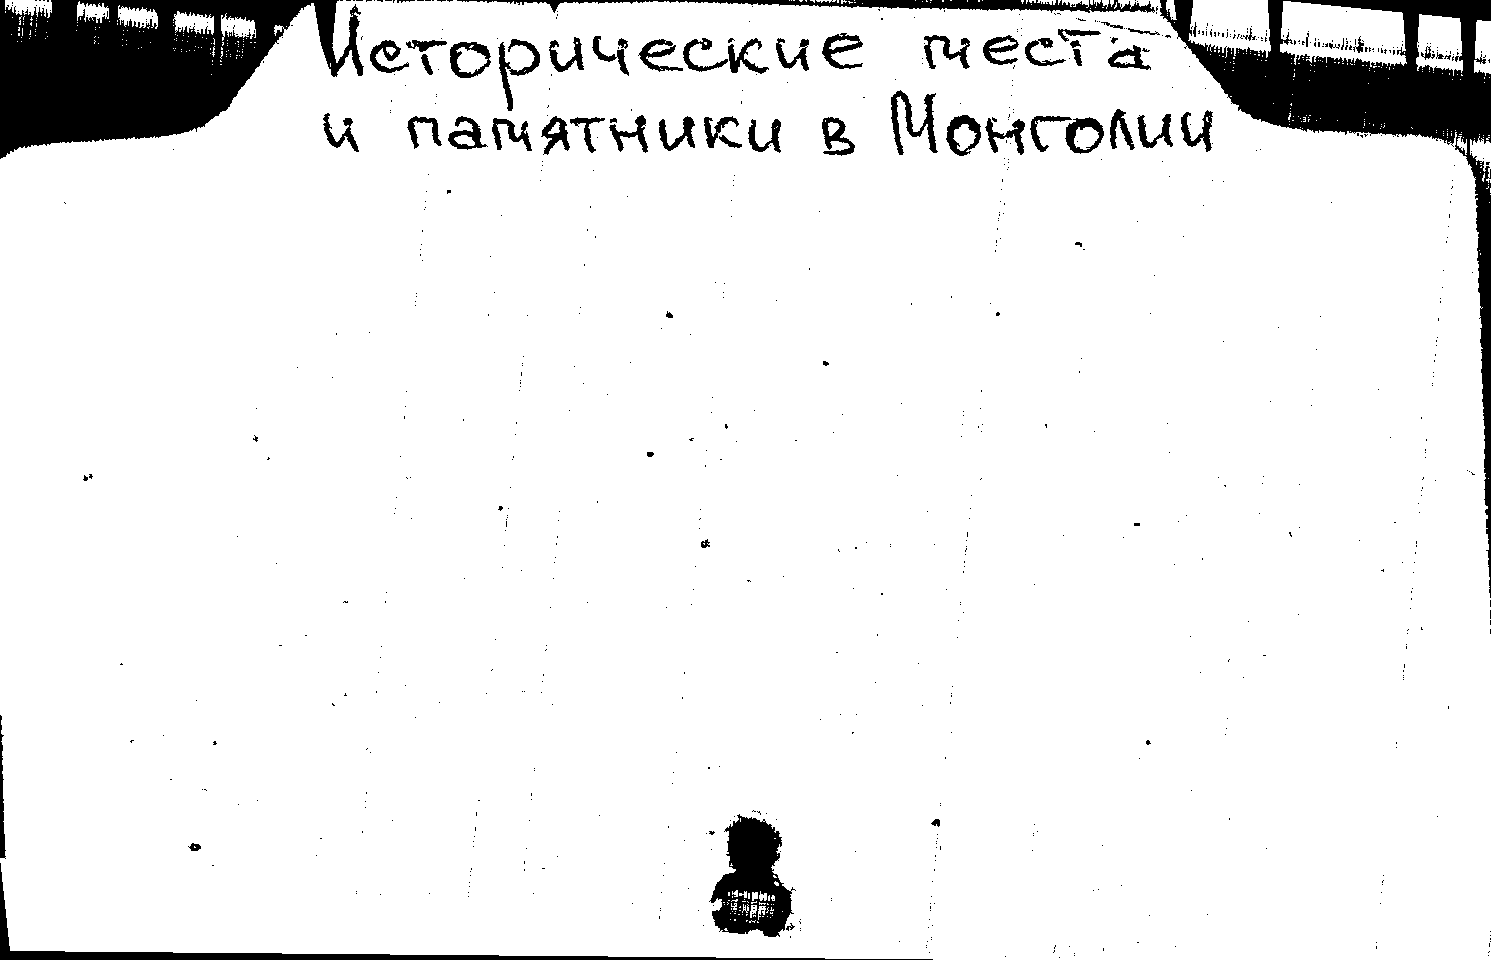 Исторические места
и памятники в Монголии